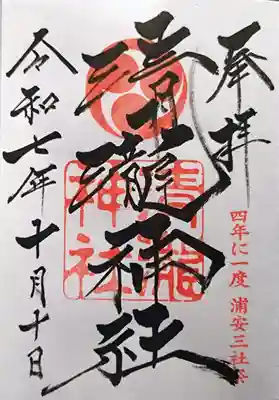 奉拝
四年に一度 浦安三社祭
清瀧神社
令和七年十月十日